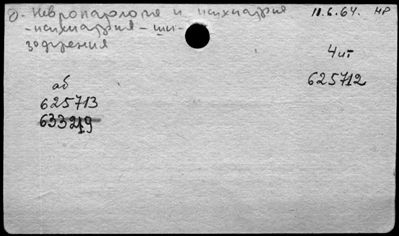 д. Невропатология и психиатрия 18.6.64. НР
-психиатрия - ши-
зофрения
4ит
625712
аб
625713
633219